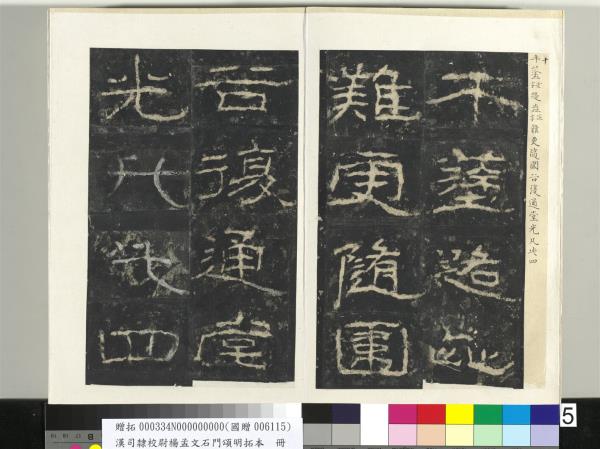 午塗路歰
難更隨圍
谷復通堂
光凡此四
難更隨圍谷復通堂光凡此四
贈拓 000334N000000000(國贈 006115)
漢司隸校尉楊孟文石門頌明拓本 冊
5